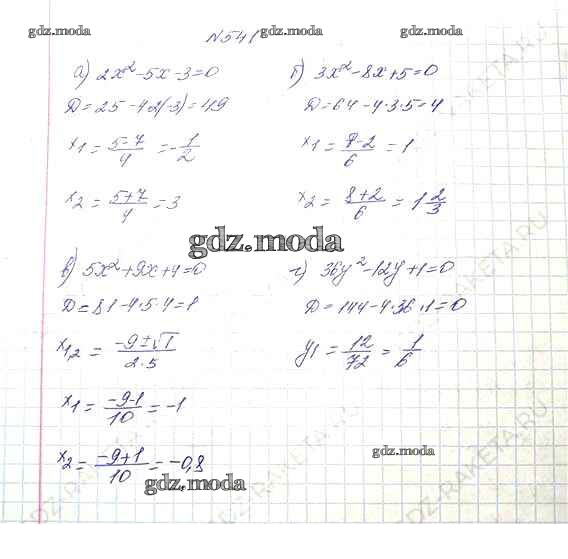 gdz.moda
gdz.moda
№541
а) 2x² - 5x - 3 = 0
D = 25 - 4·2(-3) = 49
x1 = (5-7)/4 = -1/2
x2 = (5+7)/4 = 3
б) 3x² - 8x + 5 = 0
D = 64 - 4·3·5 = 4
x1 = (8-2)/6 = 1
x2 = (8+2)/6 = 1 2/3
gdz.moda
в) 5x² + 9x + 4 = 0
D = 81 - 4·5·4 = 1
x1,2 = (-9±√1)/(2·5)
x1 = (-9-1)/10 = -1
x2 = (-9+1)/10 = -0,8
г) 36y² - 12y + 1 = 0
D = 144 - 4·36·1 = 0
y1 = 12/72 = 1/6
gdz.moda
gdz.moda
GDZ-RAKETA.RU
GDZ-RAKETA.RU